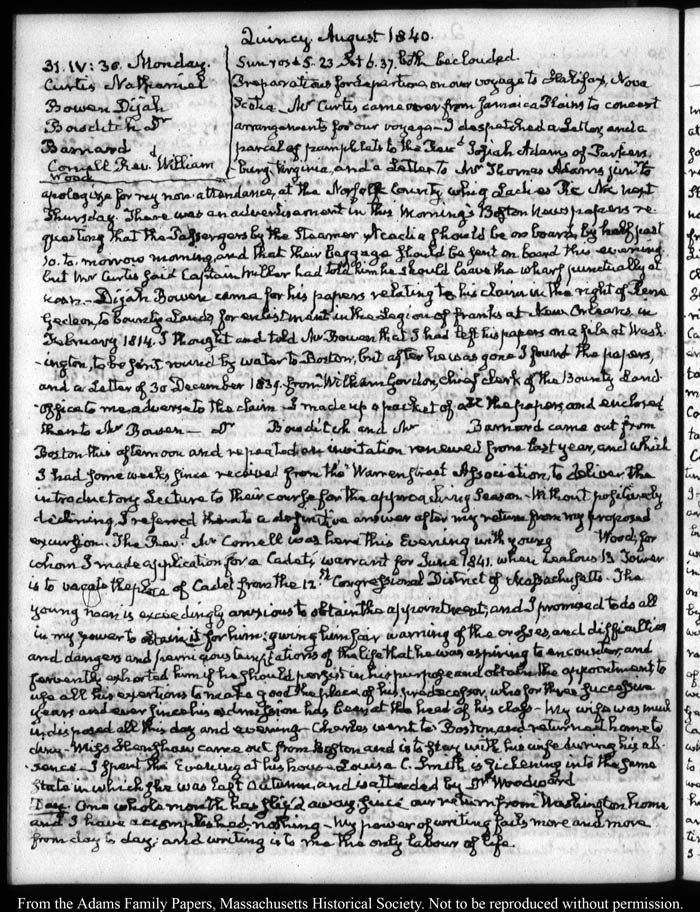 Quincy August 1840.
31. IV: 30. Monday.
Curtis Nathaniel
Bowen Dijah
Bowditch Dr
Barnard
Cornell Revd. William
Wood
Sun rose 5. 23 Set 6. 37. both beclouded.
Preparations for departure, on our voyage to Halifax, Nova
Scotia. Mr Curtis came over from Jamaica Plains to concert
arrangements for our voyage. I despatched a Letter, and a
parcel of pamphlets to the Revd. Josiah Adams of Parkers-
burg Virginia, and a Letter to Mr Thomas Adams junr. to
apologize for my non-attendance, at the Norfolk County, whig next
Thursday. There was an advertisement in this Morning's Boston Newspapers re-
questing that the Passengers by the Steamer Acadia should be on board by half past
10. to-morrow morning, and that their baggage should be sent on board this evening
but Mr Curtis said Captain Miller had told him he should leave the wharf punctually at
noon. Dijah Bowen came for his papers relating to his claim in the right of Rene
Gedeon, to bounty Lands for enlistment in the Legion of franks at New Orleans, in
February 1814. I thought and told Mr Bowen that I had left his papers on a file at Wash-
ington, to be sent round by water to Boston, but after he was gone I found the papers,
and a Letter of 30 December 1839. from William Gordon, chief clerk of the Bounty Land
Office to me, adverse to the claim. I made up a packet of all the papers and enclosed
them to Mr Bowen — Dr Bowditch and Mr Barnard came out from
Boston this afternoon and repeated an invitation renewed from last year, and which
I had some weeks since received from the Warren Street Association, to deliver the
introductory Lecture to their course for the approaching Season. Without positively
declining, I referred them to a definitive answer after my return from my proposed
excursion. The Revd. Mr Cornell was here this Evening with young Wood, for
whom I made application for a Cadet's warrant for June 1841. when Zealous B. Tower
is to vacate the place of Cadet from the 12th Congressional District of Massachusetts. The
young man is exceedingly anxious to obtain the appointment, and I promised to do all
in my power to obtain it for him: giving him fair warning of the crosses and difficulties
and dangers and pernicious temptations of the life that he was aspiring to encounter, and
fervently exhorted him if he should persist in his purpose and obtain the appointment to
use all his exertions to make good the place of his predecessor, who for three successive
years and ever since his admission has been at the head of his class. My wife was much
indisposed all this day and evening. Charles went to Boston and returned home to
dine. Miss Henshaw came out from Boston and is to stay with his wife during his ab-
sence. I spent the Evening at his house. Louisa C. Smith is sickening into the same
state in which she was last Autumn, and is attended by Dr Woodward
Day. One whole month has flied away, since our return from Washington home
and I have accomplished nothing. My power of writing fails more and more
from day to day; and writing is to me the only labour of life.
From the Adams Family Papers, Massachusetts Historical Society. Not to be reproduced without permission.